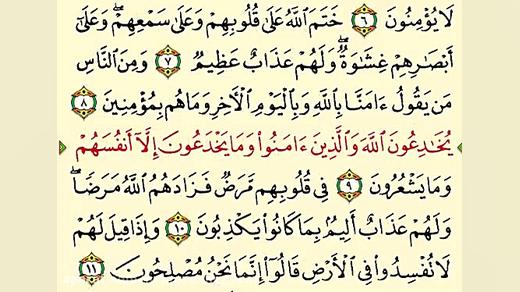 لَا يُؤْمِنُونَ ٦ خَتَمَ ٱللَّهُ عَلَىٰ قُلُوبِهِمْ وَعَلَىٰ سَمْعِهِمْ ۖ وَعَلَىٰٓ
أَبْصَٰرِهِمْ غِشَٰوَةٌ ۖ وَلَهُمْ عَذَابٌ عَظِيمٌ ٧ وَمِنَ ٱلنَّاسِ
مَن يَقُولُ ءَامَنَّا بِٱللَّهِ وَبِٱلْيَوْمِ ٱلْءَاخِرِ وَمَا هُم بِمُؤْمِنِينَ ٨
يُخَٰدِعُونَ ٱللَّهَ وَٱلَّذِينَ ءَامَنُوا۟ وَمَا يَخْدَعُونَ إِلَّآ أَنفُسَهُمْ
وَمَا يَشْعُرُونَ ٩ فِى قُلُوبِهِم مَّرَضٌ فَزَادَهُمُ ٱللَّهُ مَرَضًا ۖ
وَلَهُمْ عَذَابٌ أَلِيمٌۢ بِمَا كَانُوا۟ يَكْذِبُونَ ١٠ وَإِذَا قِيلَ لَهُمْ
لَا تُفْسِدُوا۟ فِى ٱلْأَرْضِ قَالُوٓا۟ إِنَّمَا نَحْنُ مُصْلِحُونَ ١١